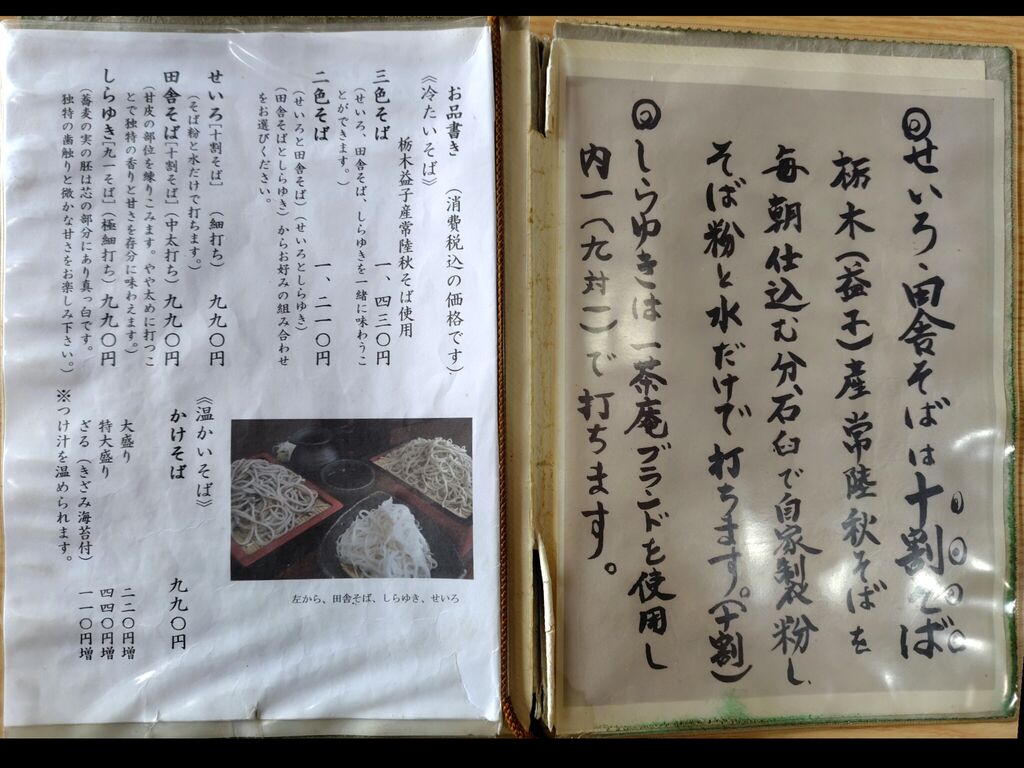 ◎せいろ、田舎そばは十割そば
栃木(益子)産常陸秋そばを
毎朝仕込む分、石臼で自家製粉し、
そば粉と水だけで打ちます。(十割)
◎しらゆきは一茶庵ブランドを使用し
内一(九対一)で打ちます。
お品書き (消費税込の価格です)
《冷たいそば》
栃木益子産常陸秋そば使用
三色そば 一、四三〇円
(せいろ、田舎そば、しらゆきを一緒に味わうこ
とができます。)
二色そば 一、二一〇円
(せいろと田舎そば)(せいろとしらゆき)
(田舎そばとしらゆき)からお好みの組み合わせ
をお選びください。
せいろ[十割そば] (細打ち) 九九〇円
(そば粉と水だけで打ちます。)
田舎そば[十割そば](中太打ち)九九〇円
(甘皮の部位を練りこみます。やや太めに打つこ
とで独特の香りと甘さを存分に味わえます。)
しらゆき[九一そば](極細打ち)九九〇円
(蕎麦の実の胚は芯の部分にあり真っ白です。
独特の歯触りと微かな甘さをお楽しみ下さい。)
※つけ汁を温められます。
左から、田舎そば、しらゆき、せいろ
《温かいそば》
かけそば 九九〇円
大盛り 二二〇円増
特大盛り 四四〇円増
ざる(きざみ海苔付) 一一〇円増